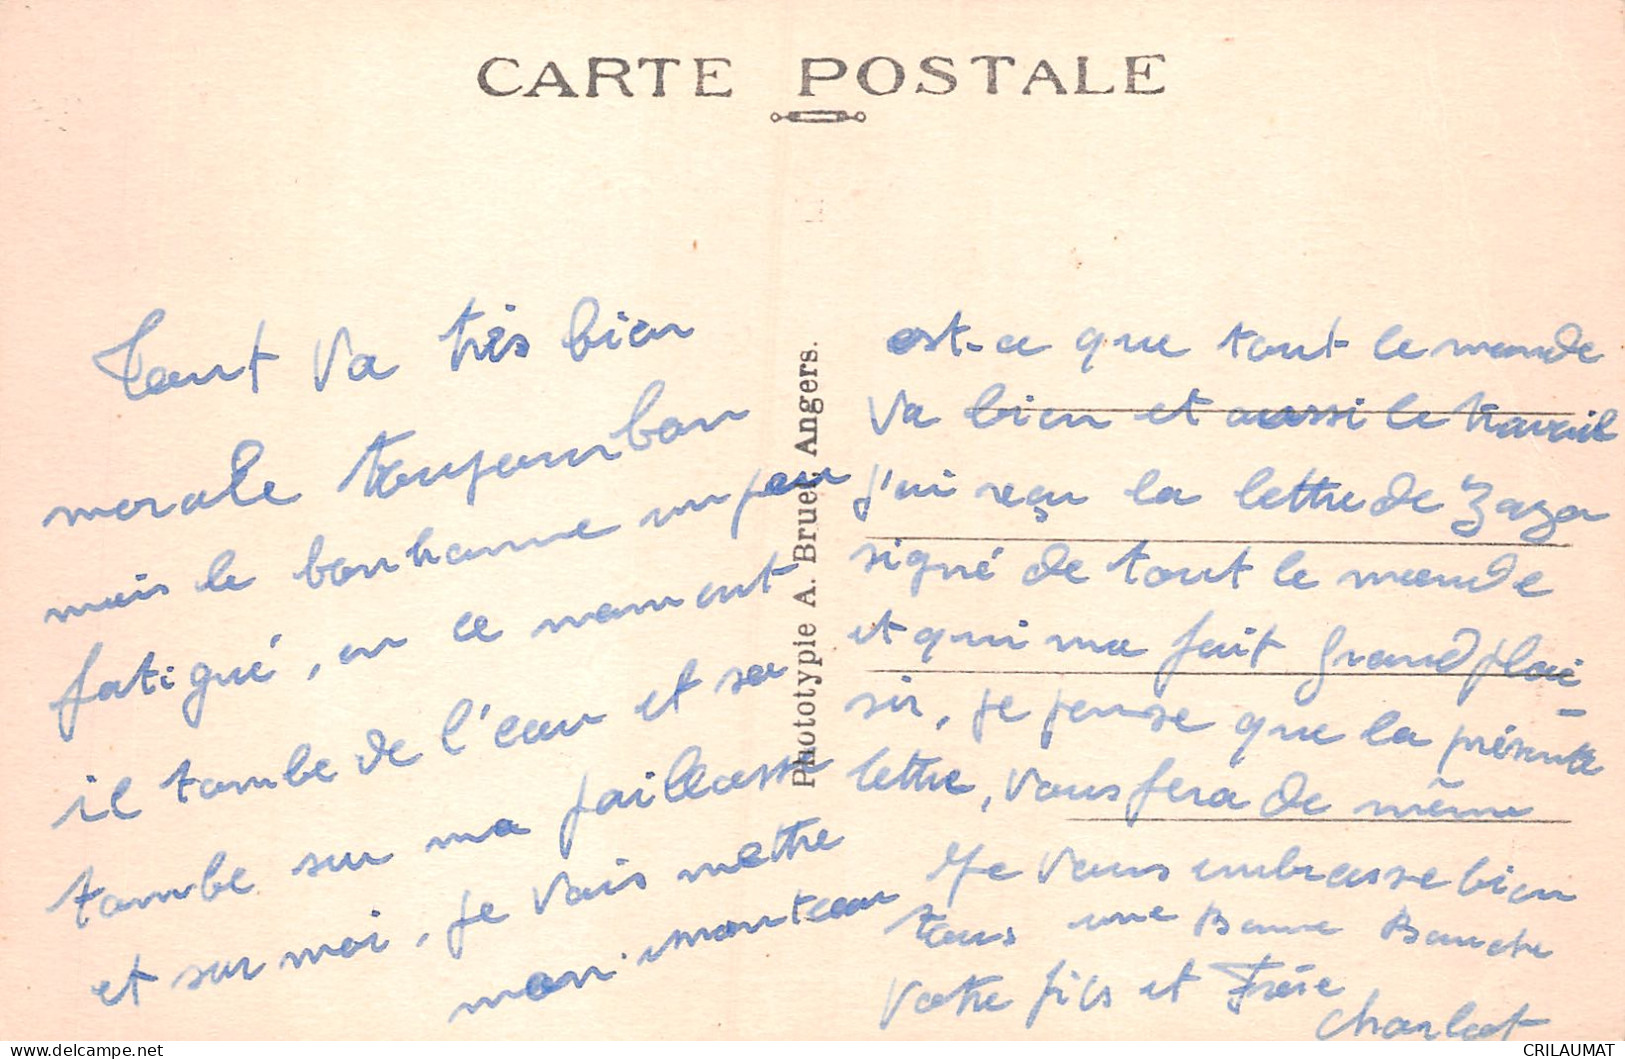 CARTE POSTALE
Tout va très bien
morale toujour bon
mais le bonhomme un peu
fatigué, en ce moment
il tombe de l'eau et sa
tombe sur ma paillasse
et sur moi, je vais mettre
mon manteau
Phototypie A. Bruel, Angers.
est-ce que tout le monde
va bien et aussi le travail
j'ai reçu la lettre de Zaza
signé de tout le monde
et qui ma fait grand plai-
sir, je pense que la présente
lettre, vous fera de même
Je vous embrasse bien
tous une Bonne
Votre fils et Frère
Charlot
CRILAUMAT